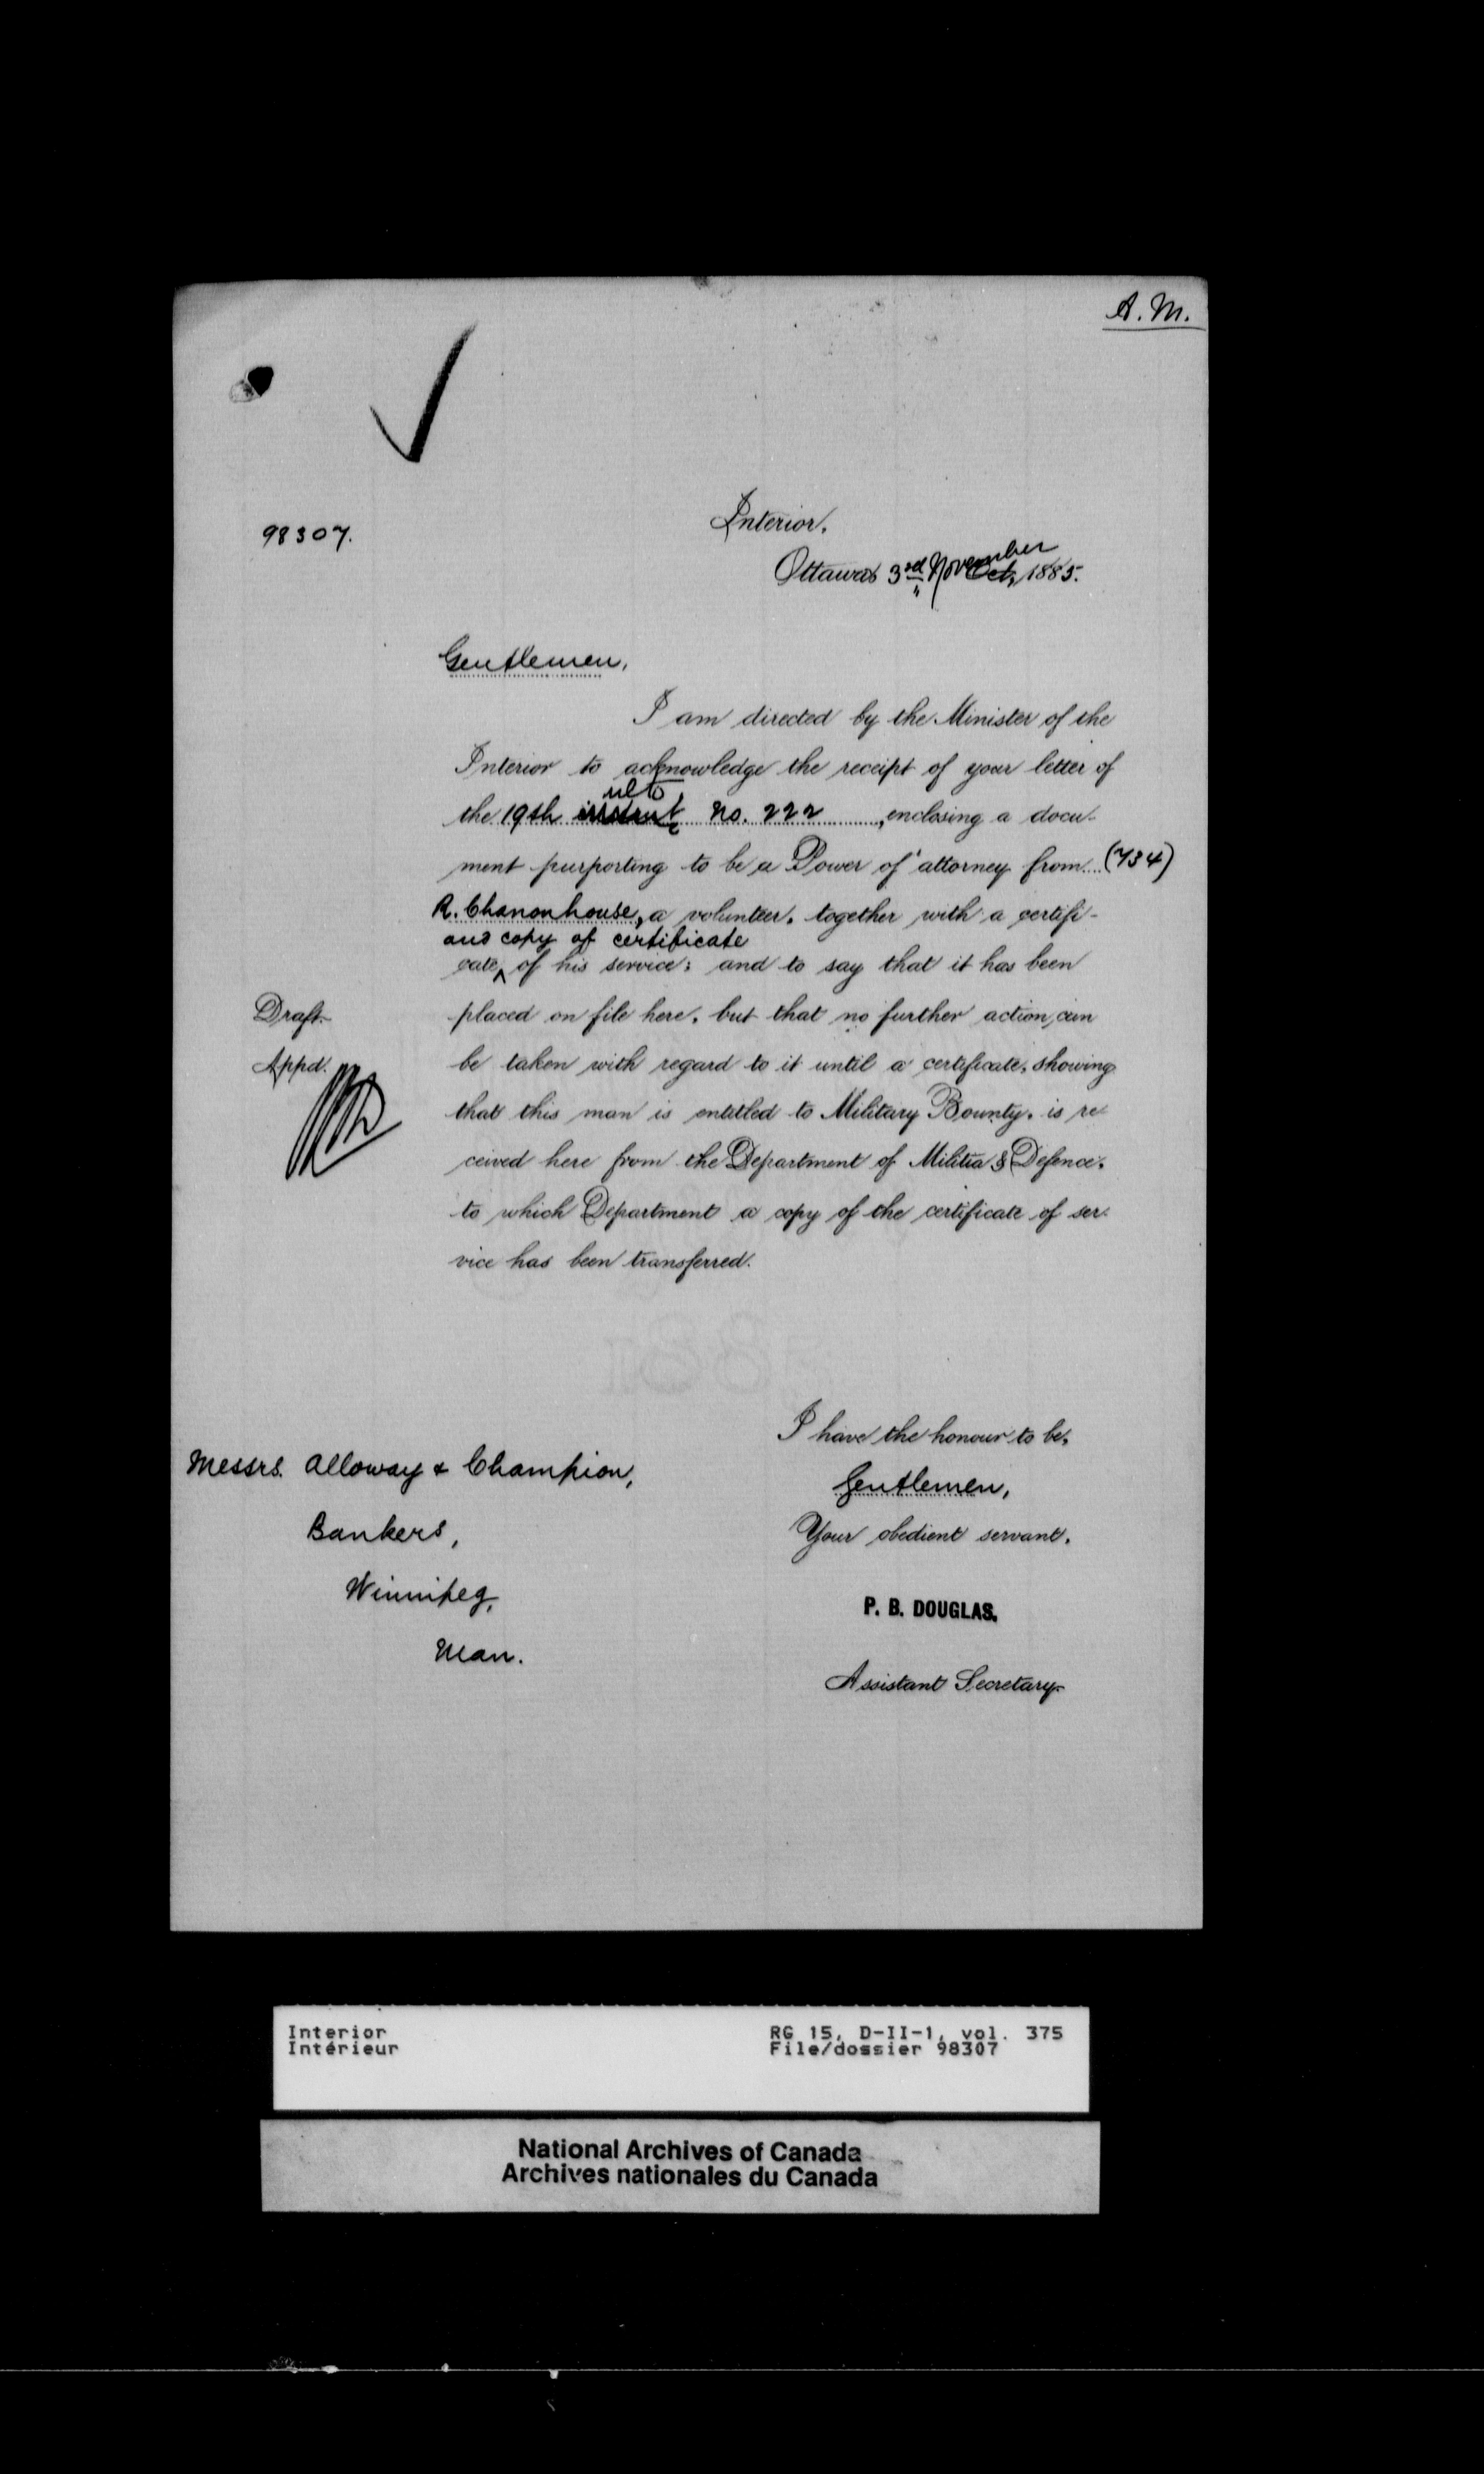 A. M.
98307.
Interior.
Ottawa 3rd November Oct, 1885.
Gentlemen,
I am directed by the Minister of the
Interior to acknowledge the receipt of your letter of
ulto
the 19th instant No. 222, enclosing a docu-
ment purporting to be a Power of attorney from (734)
R. Chanonhouse, a volunteer, together with a certifi-
and copy of certificate
cate of his service; and to say that it has been
Draft. placed on file here, but that no further action can
Appd. be taken with regard to it until a certificate, showing
that this man is entitled to Military Bounty, is re-
ceived here from the Department of Militia & Defence,
to which Department a copy of the certificate of ser-
vice has been transferred.
I have the honour to be,
Gentlemen,
Your obedient servant,
P. B. DOUGLAS.
Assistant Secretary
Messrs. Alloway & Champion,
Bankers,
Winnipeg,
Man.
Interior
Intérieur
RG 15, D-II-1, vol. 375
File/dossier 98307
National Archives of Canada
Archives nationales du Canada